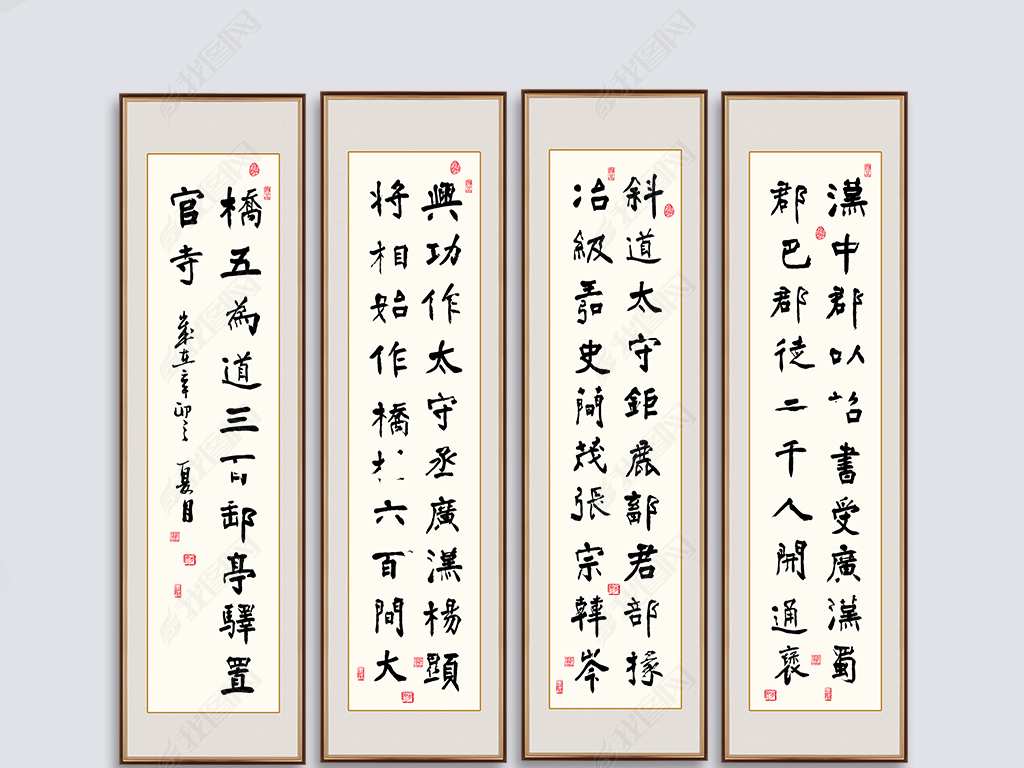 漢中郡以詔書受廣漢蜀
郡巴郡徒二千人開通褒
斜道太守鉅鹿鄐君部掾
冶級王弘史簡茂張宗韓岑
興功作太守丞廣漢楊顯
將相始作橋六百間大
橋五為道三百郵亭驛置
官寺
歲在辛卯之夏月